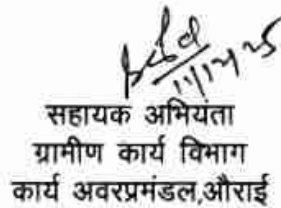 सहायक अभियंता
ग्रामीण कार्य विभाग
कार्य अवरप्रमंडल,औराई